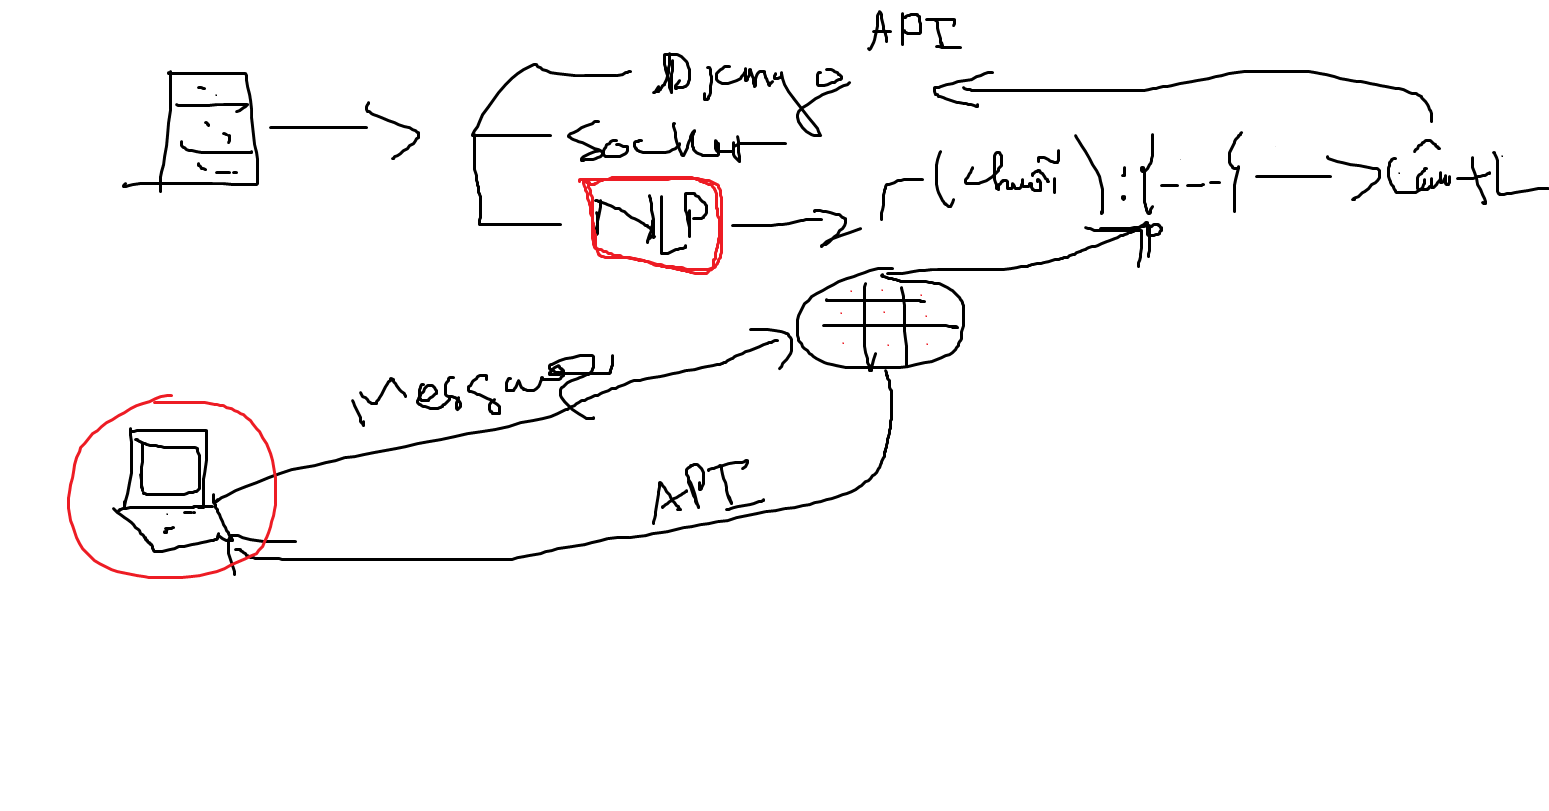 API
Django
Socket
NLP
(chuỗi) : {---} Câu tL
Message
API